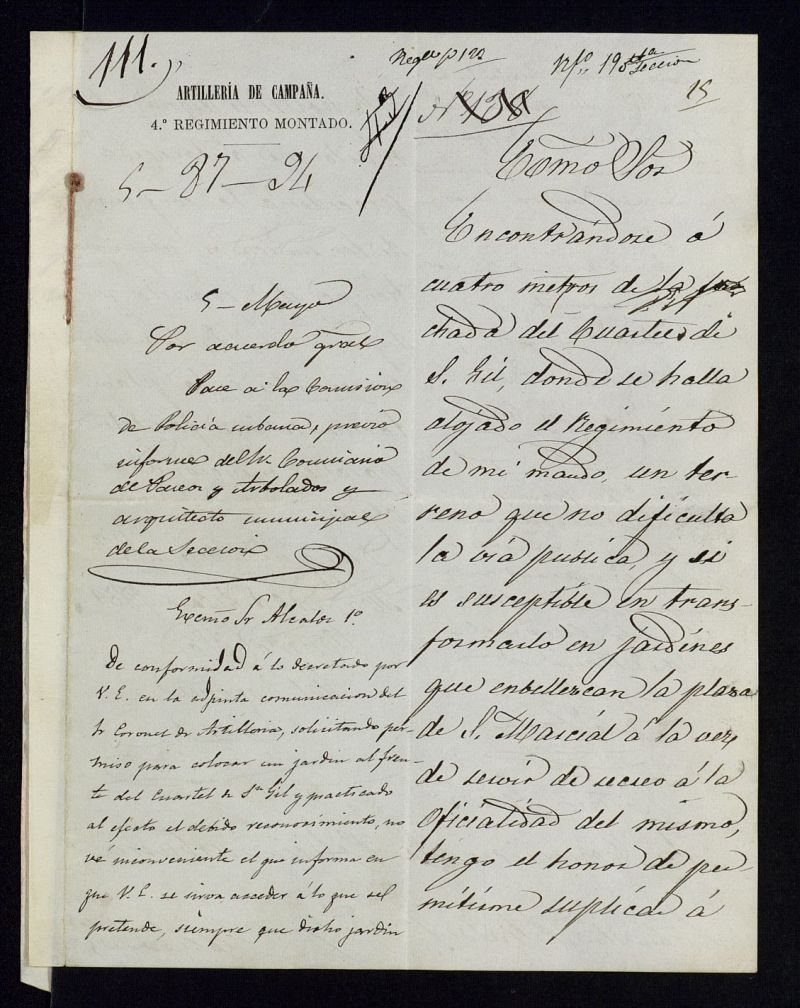 111.
ARTILLERÍA DE CAMPAÑA.
4.º REGIMIENTO MONTADO.
5-87-94
5-Mayo
Por acuerdo gral
Pase a la Comision
de Policía urbana, previo
informe del Sr. Comisario
de Paseos y Arbolados y
arquitecto municipal
de la Seccion
Excmo Sr Alcalde 1º
De conformidad á lo decretado por
V. E. en la adjunta comunicacion del
Sr Coronel de Artilleria, solicitando per-
miso para colocar un jardin al fren-
te del Cuartel de Sn Gil y practicado
al efecto el debido reconocimiento, no
vé inconveniente el que informa en
que V. E. se sirva acceder á lo que se
pretende, siempre que dicho jardin
Regdo p 123
15
Ecsmo Sor
Encontrándose á
cuatro metros de la fa
chada del Cuartel de
S. Gil, donde se halla
alojado el Regimiento
de mi mando, un ter-
reno que no dificulta
la via publica, y si
es susceptible en trans-
formarlo en jardines
que enbellezcan la plaza
de S. Marcial á la vez
de servir de recreo á la
Oficialidad del mismo,
tengo el honor de per
mitirme suplicar á